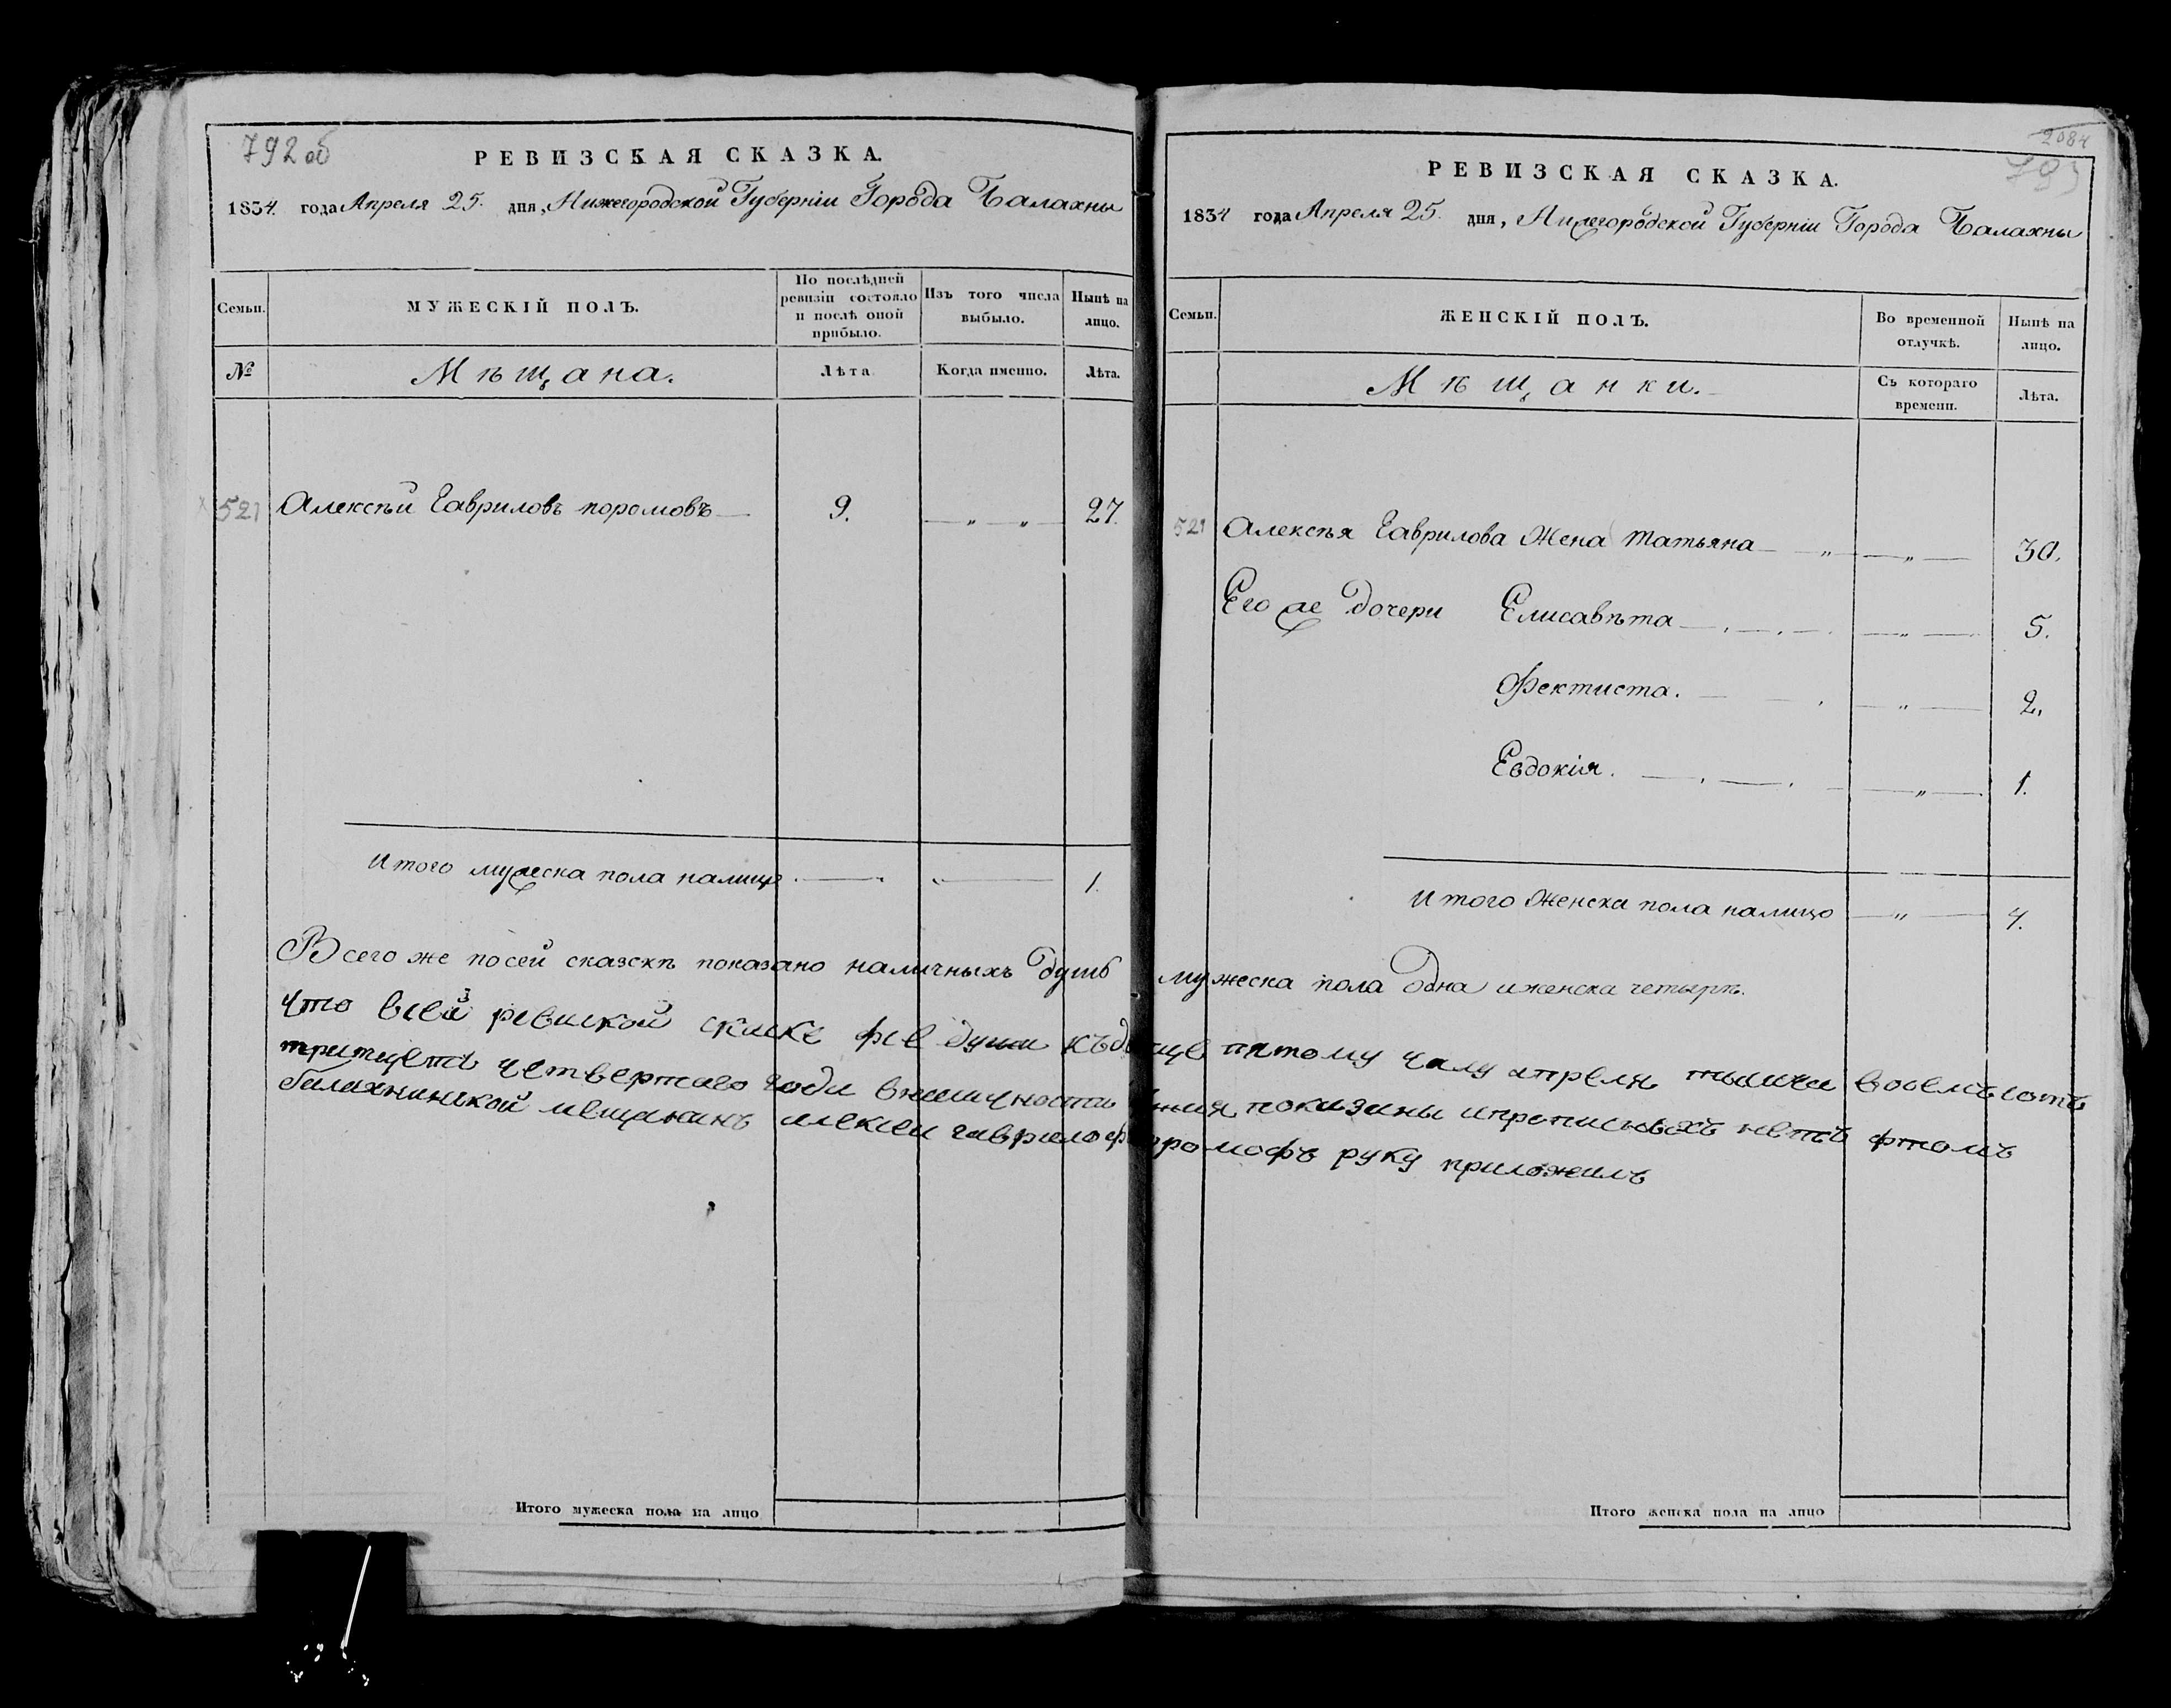 792 об
РЕВИЗСКАЯ СКАЗКА.
1834. года Апреля 25. дня, Нижегородской Губернiи Города Балахны
Семьи.
МУЖЕСКIЙ ПОЛЪ.
По послѣдней ревизiи состояло и послѣ оной прибыло.
Изъ того числа выбыло.
Нынѣ на лицо.
№
Мѣщана.
Лѣта
Когда именно.
Лѣта.
521 Алексѣй Гавриловъ поромовъ — 9. — „ „ — 27.
Итого мужеска пола налицо. — „ — 1.
2084
793
РЕВИЗСКАЯ СКАЗКА.
1834 года Апреля 25. дня, Нижегородской Губернiи Города Балахны
Семьи.
ЖЕНСКIЙ ПОЛЪ.
Во временной отлучкѣ.
Нынѣ на лицо.
Мѣщанки.
Съ котораго времени.
Лѣта.
521 Алексѣя Гаврилова Жена Татьяна — „ — „ — 30.
Его же Дочери Елисавѣта — „ — 5.
Фектиста. — „ — 2.
Евдокiя. — „ — 1.
Итого Женска пола налицо — „ — 4.
Всего же посей сказскѣ показано наличныхъ Душъ мужеска пола Одна иженска четырѣ.
что всей ревиской скаске фсе души пятому числу апреля тысича восемъсотъ
тритцеть четвертаго года вналичности показаны ипрописныхъ нетъ фтомъ
балахнинской мещанинъ алексеи гаврилоф поромофъ руку приложилъ
Итого мужеска пола на лицо
Итого женска пола на лицо